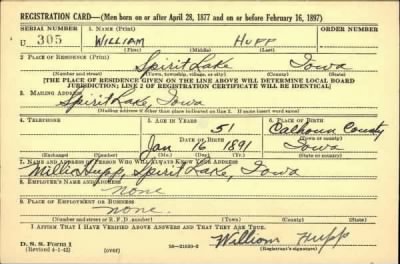 REGISTRATION CARD—(Men born on or after April 28, 1877 and on or before February 16, 1897)
SERIAL NUMBER 1. NAME (Print) ORDER NUMBER
U 305 WILLIAM HUPP
(First) (Middle) (Last)
2. PLACE OF RESIDENCE (Print)
Spirit Lake Iowa
(Number and street) (Town, township, village, or city) (County) (State)
[THE PLACE OF RESIDENCE GIVEN ON THE LINE ABOVE WILL DETERMINE LOCAL BOARD
JURISDICTION; LINE 2 OF REGISTRATION CERTIFICATE WILL BE IDENTICAL]
3. MAILING ADDRESS
Spirit Lake, Iowa
[Mailing address if other than place indicated on line 2. If same insert word same]
4. TELEPHONE 5. AGE IN YEARS 6. PLACE OF BIRTH
51 Calhoun County
DATE OF BIRTH (Town or county)
Jan 16 1891 Iowa
(Exchange) (Number) (Mo.) (Day) (Yr.) (State or country)
7. NAME AND ADDRESS OF PERSON WHO WILL ALWAYS KNOW YOUR ADDRESS
Millie Hupp, Spirit Lake, Iowa
8. EMPLOYER'S NAME AND ADDRESS
none
9. PLACE OF EMPLOYMENT OR BUSINESS
none.
(Number and street or R. F. D. number) (Town) (County) (State)
I AFFIRM THAT I HAVE VERIFIED ABOVE ANSWERS AND THAT THEY ARE TRUE.
D. S. S. Form 1
(Revised 4-1-42) (over) William Hupp
(Registrant's signature)